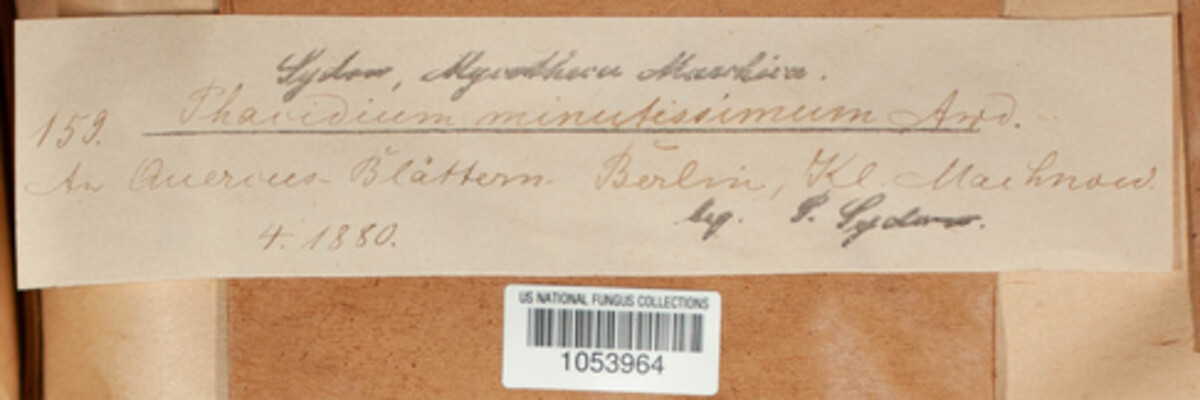 Sydow, Mycotheca Marchica.
159. Phacidium minutissimum Awd.
An Quercus-Blättern. Berlin, Kl. Machnow.
leg. P. Sydow.
4. 1880.
US NATIONAL FUNGUS COLLECTIONS
1053964